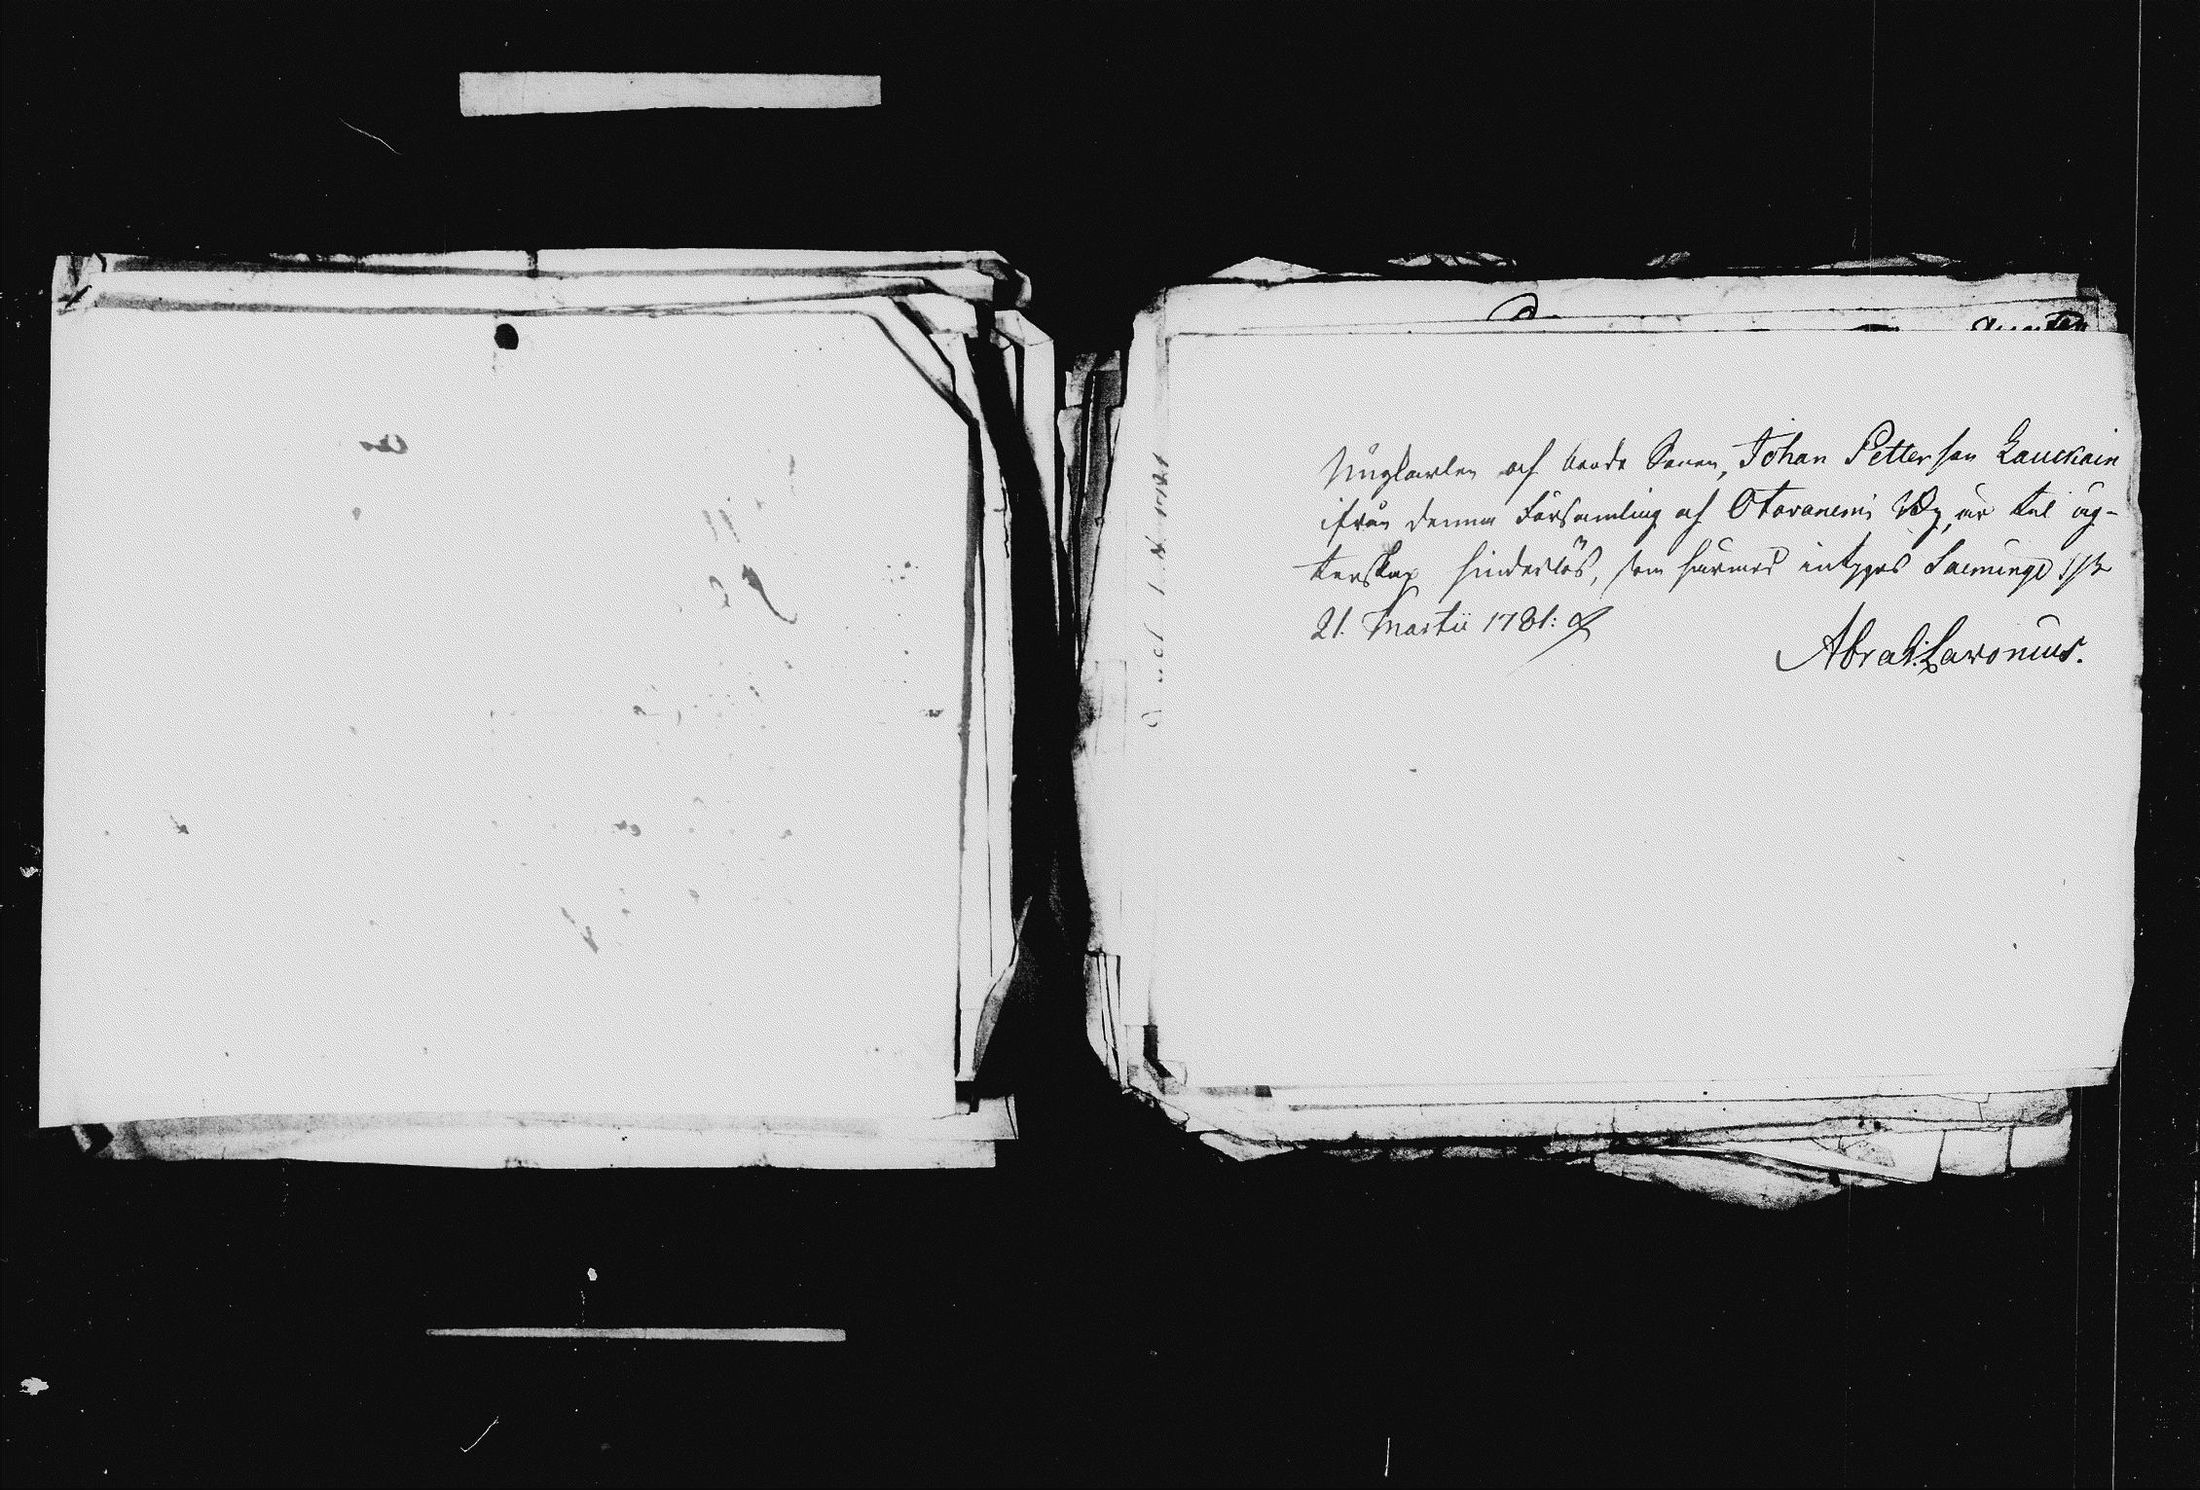 Ynglarlen af bonde Sonen, Johan Petterson Lauckain
ifrån denna Församling af Otavanemi By, är til äg-
tenskap hinderlös, som härmed intygas Säminge
21. Martii 1781.
Abrah: Lavonius.